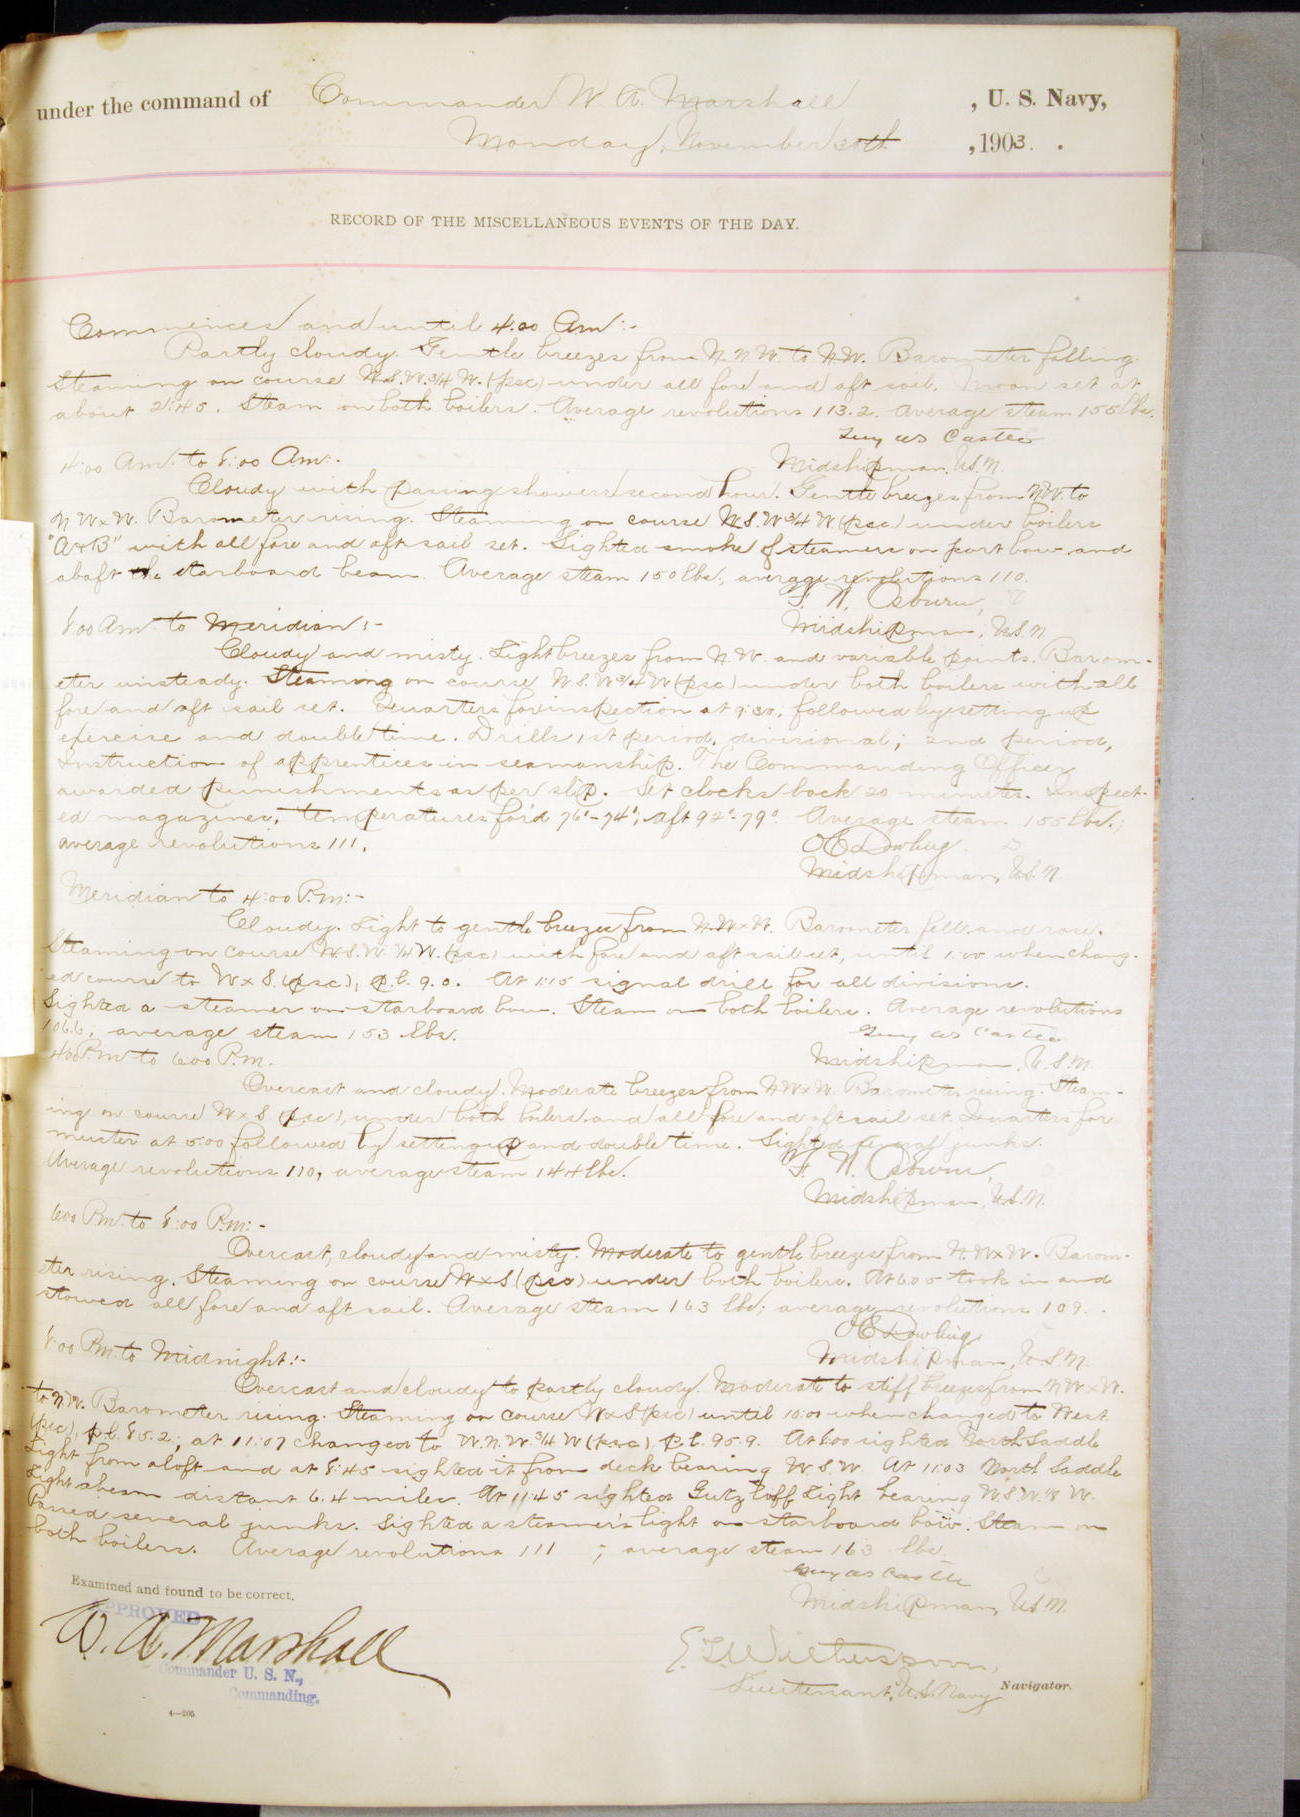 under the command of Commander W. A. Marshall , U. S. Navy,
Monday, November 30th , 1903.
RECORD OF THE MISCELLANEOUS EVENTS OF THE DAY.
Commences and until 4.00 Am:-
Partly cloudy. Gentle breezes from N.N.W. to N.W. Barometer falling.
Steaming on course W.S.W.¾W. (psc) under all fore and aft sail. Moon set at
about 2:45. Steam on both boilers. Average revolutions 113.2. Average steam 155 lbs.
Guy W S Castle
4:00 Am. to 8:00 Am:-
Midshipman, U.S.N.
Cloudy with passing showers second hour. Gentle breezes from N.W. to
N W x W. Barometer rising. Steaming on course W.S.W¾W (psc) under boilers
"A & B" with all fore and aft sail set. Sighted smoke of steamers on port bow and
abaft the starboard beam. Average steam 150 lbs, average revolutions 110.
F. N. Osburn,
8:00 Am to Meridian:-
Midshipman, U.S.N.
Cloudy and misty. Light breezes from N.W. and variable points. Barom-
eter unsteady. Steaming on course W.S.W¾W (psc) under both boilers with all
fore and aft sail set. Quarters for inspection at 9:30, followed by setting up
exercise and double time. Drills, 1st period, divisional; 2nd period,
Instruction of apprentices in seamanship. The Commanding Officer
awarded punishments as per slip. Set clocks back 20 minutes. Inspect-
ed magazines, temperatures for'd 76°-74°; aft 92°-79°. Average steam 155 lbs.;
average revolutions 111.
Dowling.
Midshipman, U.S.N
Meridian to 4:00 P.m:-
Cloudy. Light to gentle breezes from N.W x W. Barometer fell and rose.
Steaming on course W.S.W. ¾ W. (psc) with fore and aft sail set, until 1:00 when chang-
ed course to W x S. (psc), p.l. 9.0. At 1:15 signal drill for all divisions.
Sighted a steamer on starboard bow. Steam on both boilers. Average revolutions
106.6, average steam 153 lbs.
Guy W S Castle
4:00 P.m to 6:00 P.m.
Midshipman, U.S.N.
Overcast and cloudy. Moderate breezes from N W x W. Barometer rising. Steam-
ing on course W x S (psc), under both boilers and all fore and aft sail set. Quarters for
muster at 5:00 followed by setting up and double time. Sighted junks.
Average revolutions 110, average steam 144 lbs.
F. N. Osburn,
Midshipman, U.S.N.
6:00 P.m. to 8:00 P.m:-
Overcast, cloudy and misty. Moderate to gentle breezes from N.W x W. Barom-
eter rising. Steaming on course W x S (psc) under both boilers. At 6:05 took in and
stowed all fore and aft sail. Average steam 163 lbs; average revolutions 109.
Dowling
8:00 P.m. to Midnight:-
Midshipman, U.S.N.
Overcast and cloudy to partly cloudy. Moderate to stiff breezes from N W x W.
to N.W. Barometer rising. Steaming on course W x S (psc) until 10:00 when changed to West
(psc), p.l. 85.2; at 11:07 changed to W.N.W.¾W (psc) p.l. 95.9. At 8:00 sighted North Saddle
Light from aloft and at 8:45 sighted it from deck bearing W.S.W. At 11:03 North Saddle
Light abeam distant 6.4 miles. At 11:45 sighted Gutzlaff Light bearing W.S.W. W.
Passed several junks. Sighted a steamer's light on starboard bow. Steam on
both boilers. Average revolutions 111 ; average steam 163 lbs.
Guy W S Castle
Midshipman, U.S.N.
Examined and found to be correct.
APPROVED
W. A. Marshall
Commander U. S. N.,
Commanding.
E. T. Witherspoon,
Lieutenant, U.S. Navy Navigator.
4—205